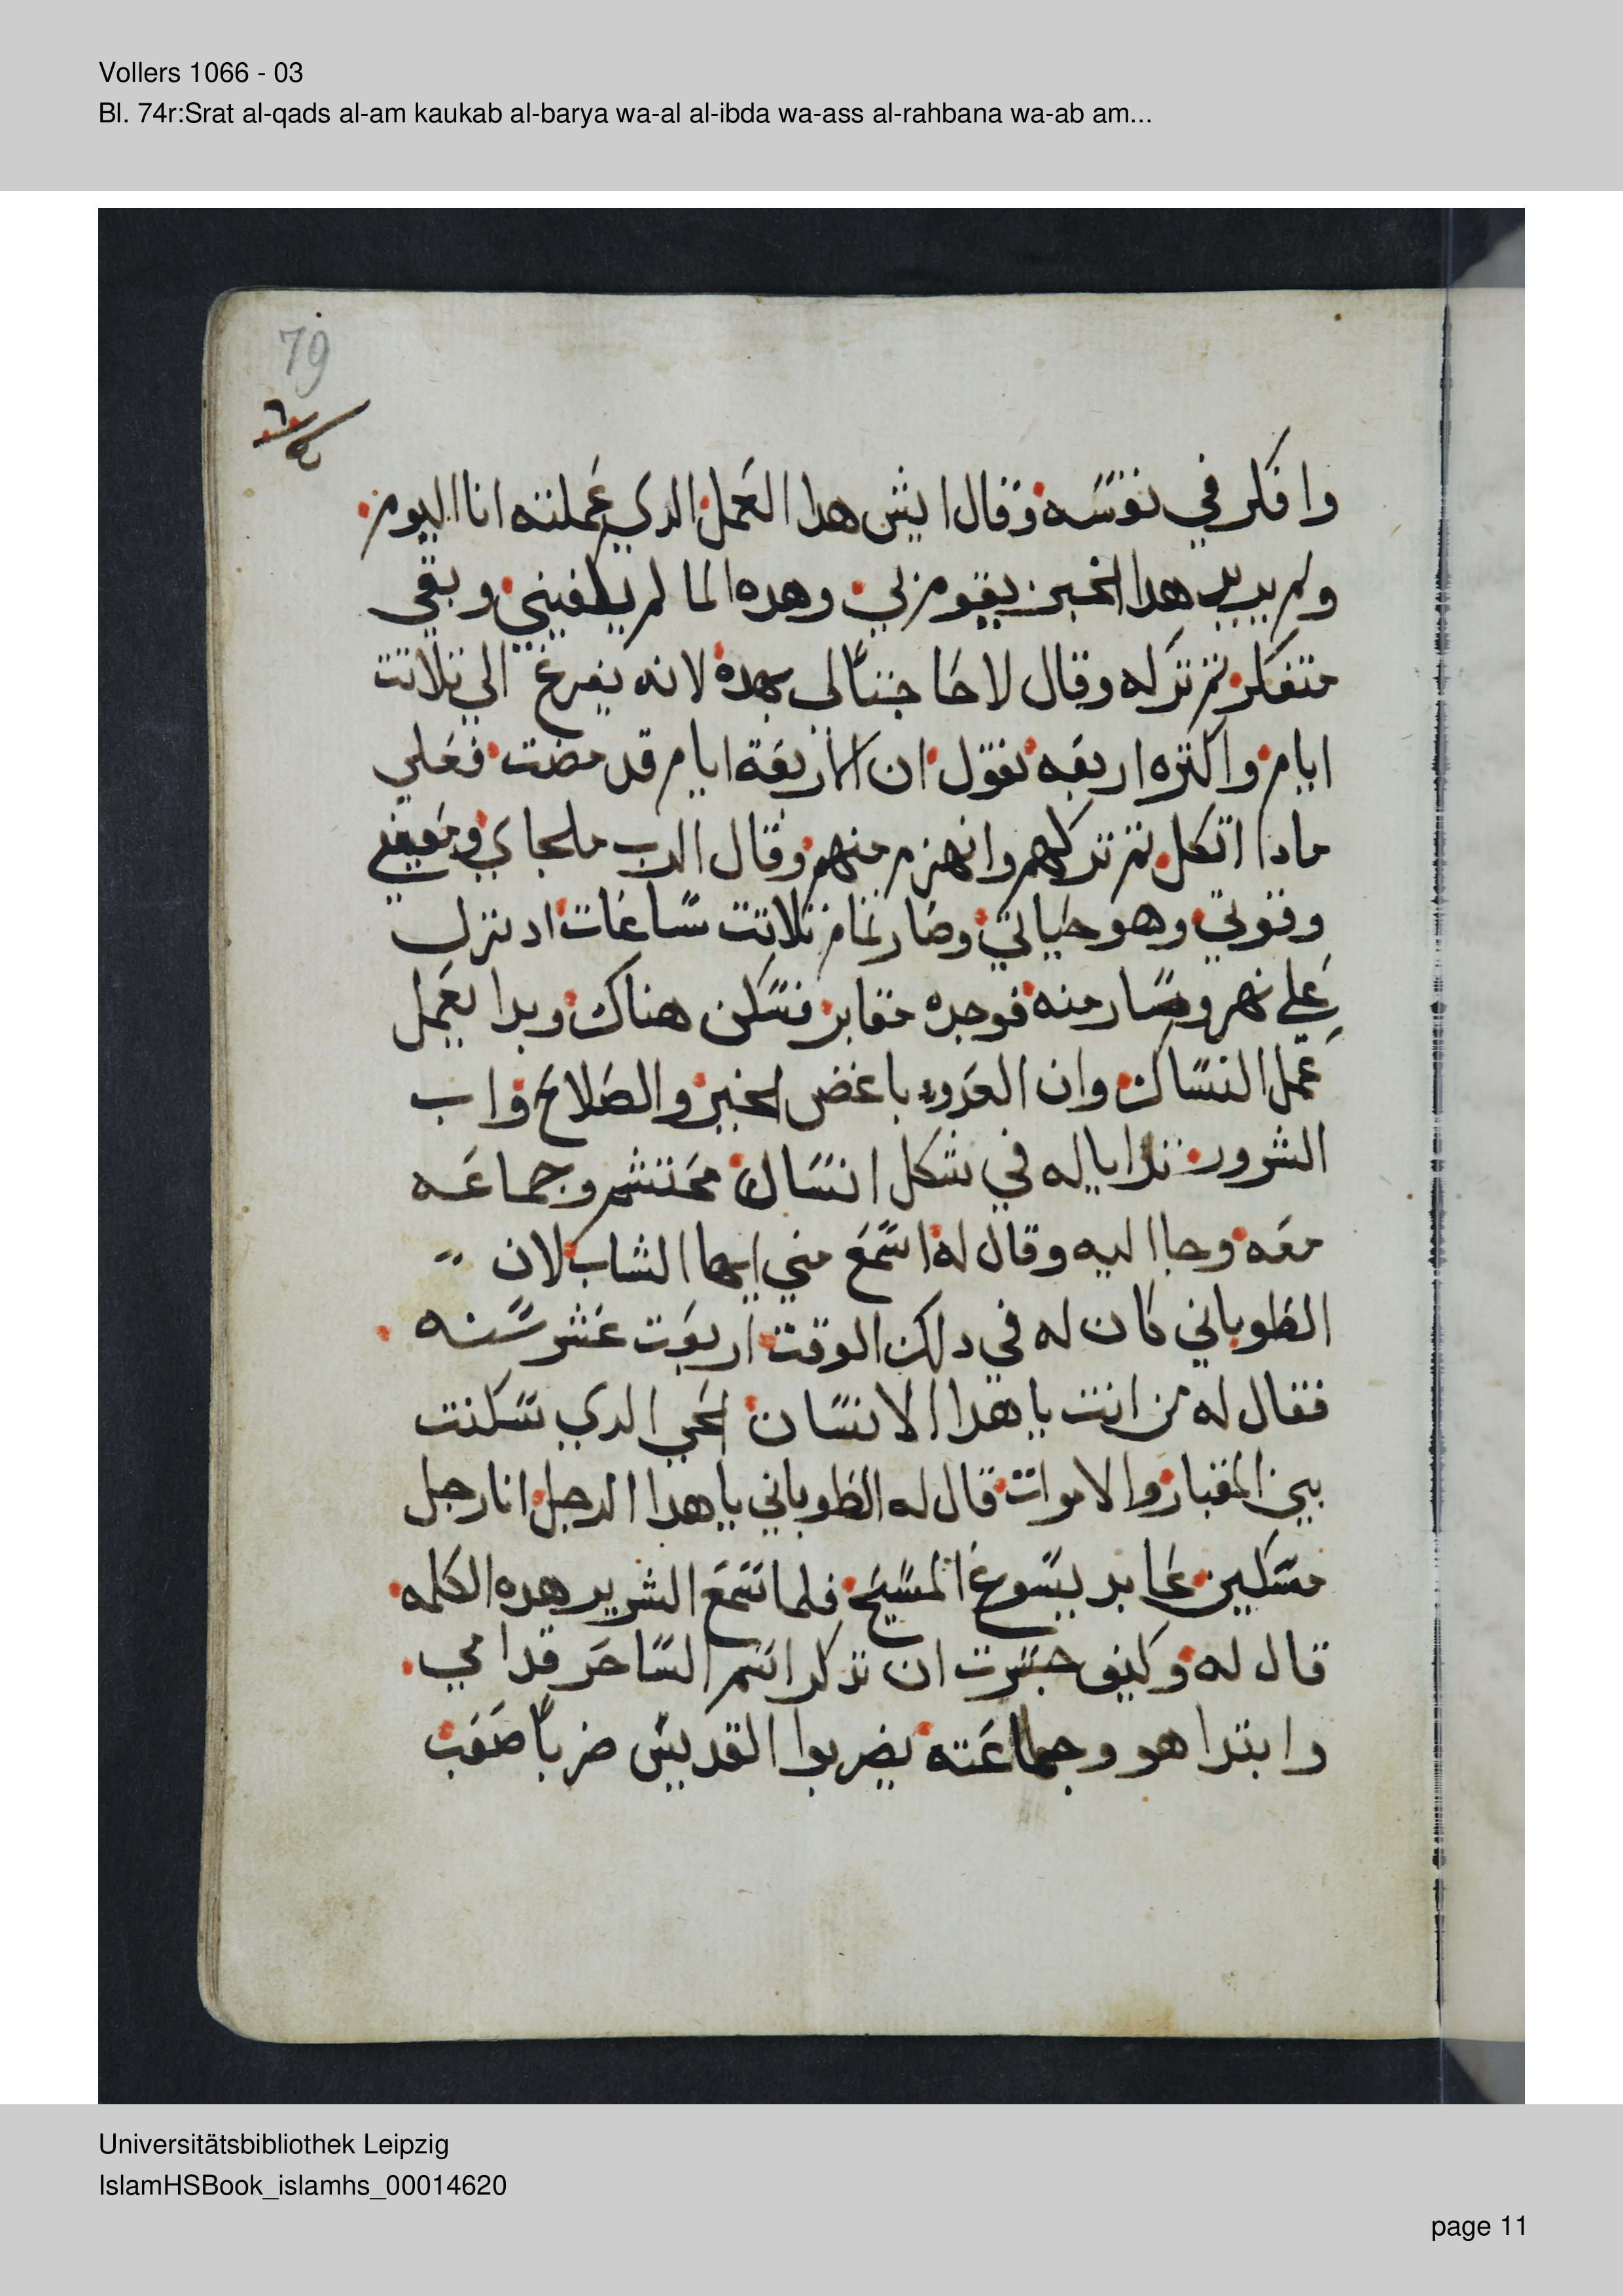 Vollers 1066 - 03
Bl. 74r:Srat al-qads al-am kaukab al-barya wa-al al-ibda wa-ass al-rahbana wa-ab am...
79
وافكر في نفسه وقال ايش هدا العمل الدي عملته انا اليوم
ولم يريد هدا الخبز يقوم بي وهده الما لم يكفيني وبقي
متفكر تم تركه وقال لاحاجتاً لي بهده لانه يفرغ الي تلاتت
ايام واكتره اربعه نقول ان الاربعة ايام قد مضت فعلي
مادا اتكل تم تركهم وانهزم منهم وقال الرب ملجاي ومعيني
وقوتي وهو حياتي وصار تمام تلاتت ساعات اد نزل
علي نهر وسار منه فوجده مقابر فسكن هناك وبدا يعمل
عمل النساك وان العدو باغض الخير والصلاح واب
الشرور ترايا له في شكل انسان محتشم وجماعه
معه وجا اليه وقال له اسمع مني ايها الشاب لان
الطوباني كان له في دلك الوقت اربعت عشر سنه
فقال له من انت يا هدا الانسان الحي الدي سكنت
بين المقبار والاموات قال له الطوباني يا هدا الرجل انا رجل
مسكين عابد ليسوع المسيح فلما سمع الشرير هده الكلمه
قال له وكيف جسرت ان تدكر اسم الساحر قدامي
وابتدا هو وجماعته يضربوا القديس ضرباً صعب
Universitätsbibliothek Leipzig
IslamHSBook_islamhs_00014620
page 11